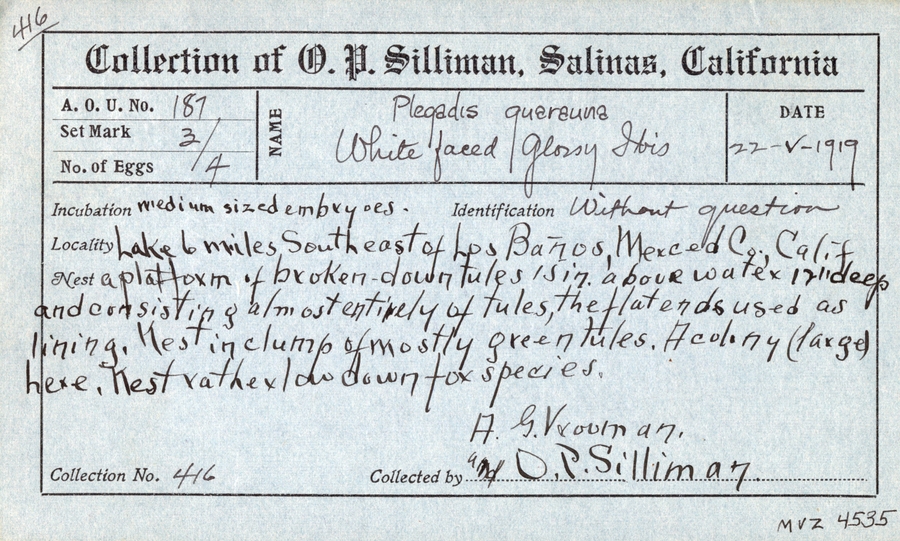 416
Collection of O. P. Silliman, Salinas, California
A. O. U. No. 187
Set Mark 3/
No. of Eggs 4
NAME
Plegadis guarauna
White faced Glossy Ibis
DATE
22-V-1919
Incubation medium sized embryoes. Identification Without question
Locality Lake 6 miles Southeast of Los Baños, Merced Co., Calif
Nest a platform of broken-down tules 15 in. above water 12" deep
and consisting almost entirely of tules, the flat ends used as
lining. Nest in clump of mostly green tules. A colony (large)
here. Nest rather low down for species.
A. G. Vrooman.
Collection No. 416 Collected by and O. P. Silliman.
MVZ 4535